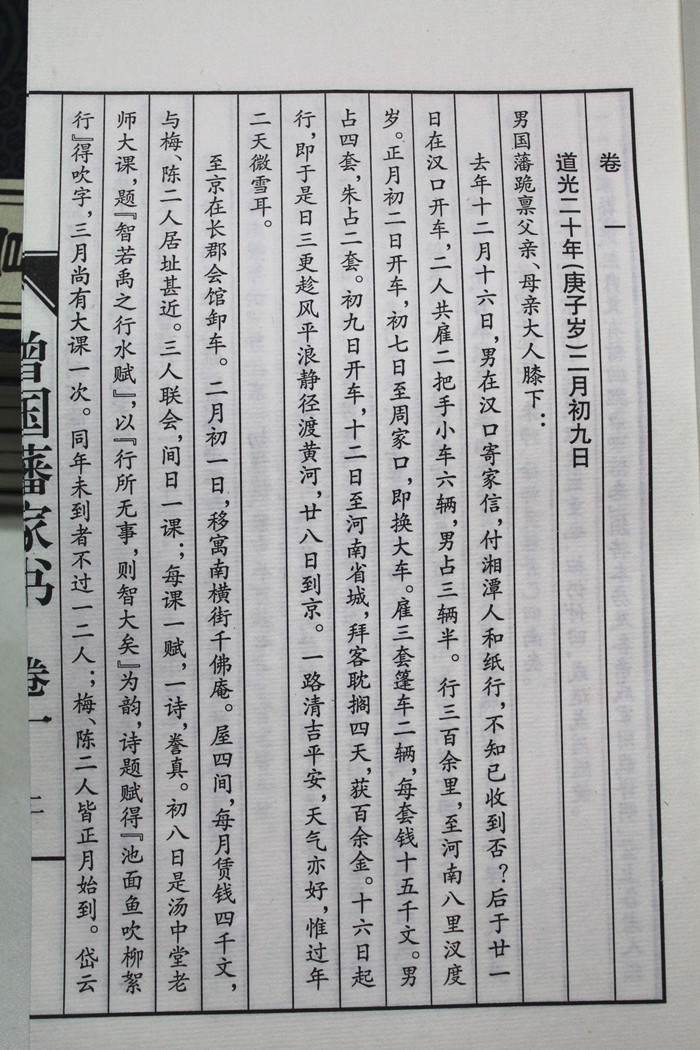 卷一
道光二十年(庚子岁)二月初九日
男国藩跪禀父亲、母亲大人膝下：
去年十二月十六日，男在汉口寄家信，付湘潭人和纸行，不知已收到否？后于廿一
日在汉口开车，二人共雇二把手小车六辆，男占三辆半。行三百余里，至河南八里汊度
岁。正月初二日开车，初七日至周家口，即换大车。雇三套篷车二辆，每套钱十五千文。男
占四套，朱占二套。初九日开车，十二日至河南省城，拜客耽搁四天，获百余金。十六日起
行，即于是日三更趁风平浪静径渡黄河，廿八日到京。一路清吉平安，天气亦好，惟过年
二天微雪耳。
至京在长郡会馆卸车。二月初一日，移寓南横街千佛庵。屋四间，每月赁钱四千文，
与梅、陈二人居址甚近。三人联会，间日一课；每课一赋，一诗，誊真。初八日是汤中堂老
师大课，题『智若禹之行水赋』，以『行所无事，则智大矣』为韵，诗题赋得『池面鱼吹柳絮
行』得吹字，三月尚有大课一次。同年未到者不过一二人；梅、陈二人皆正月始到。岱云
曾国藩家书 卷一 二